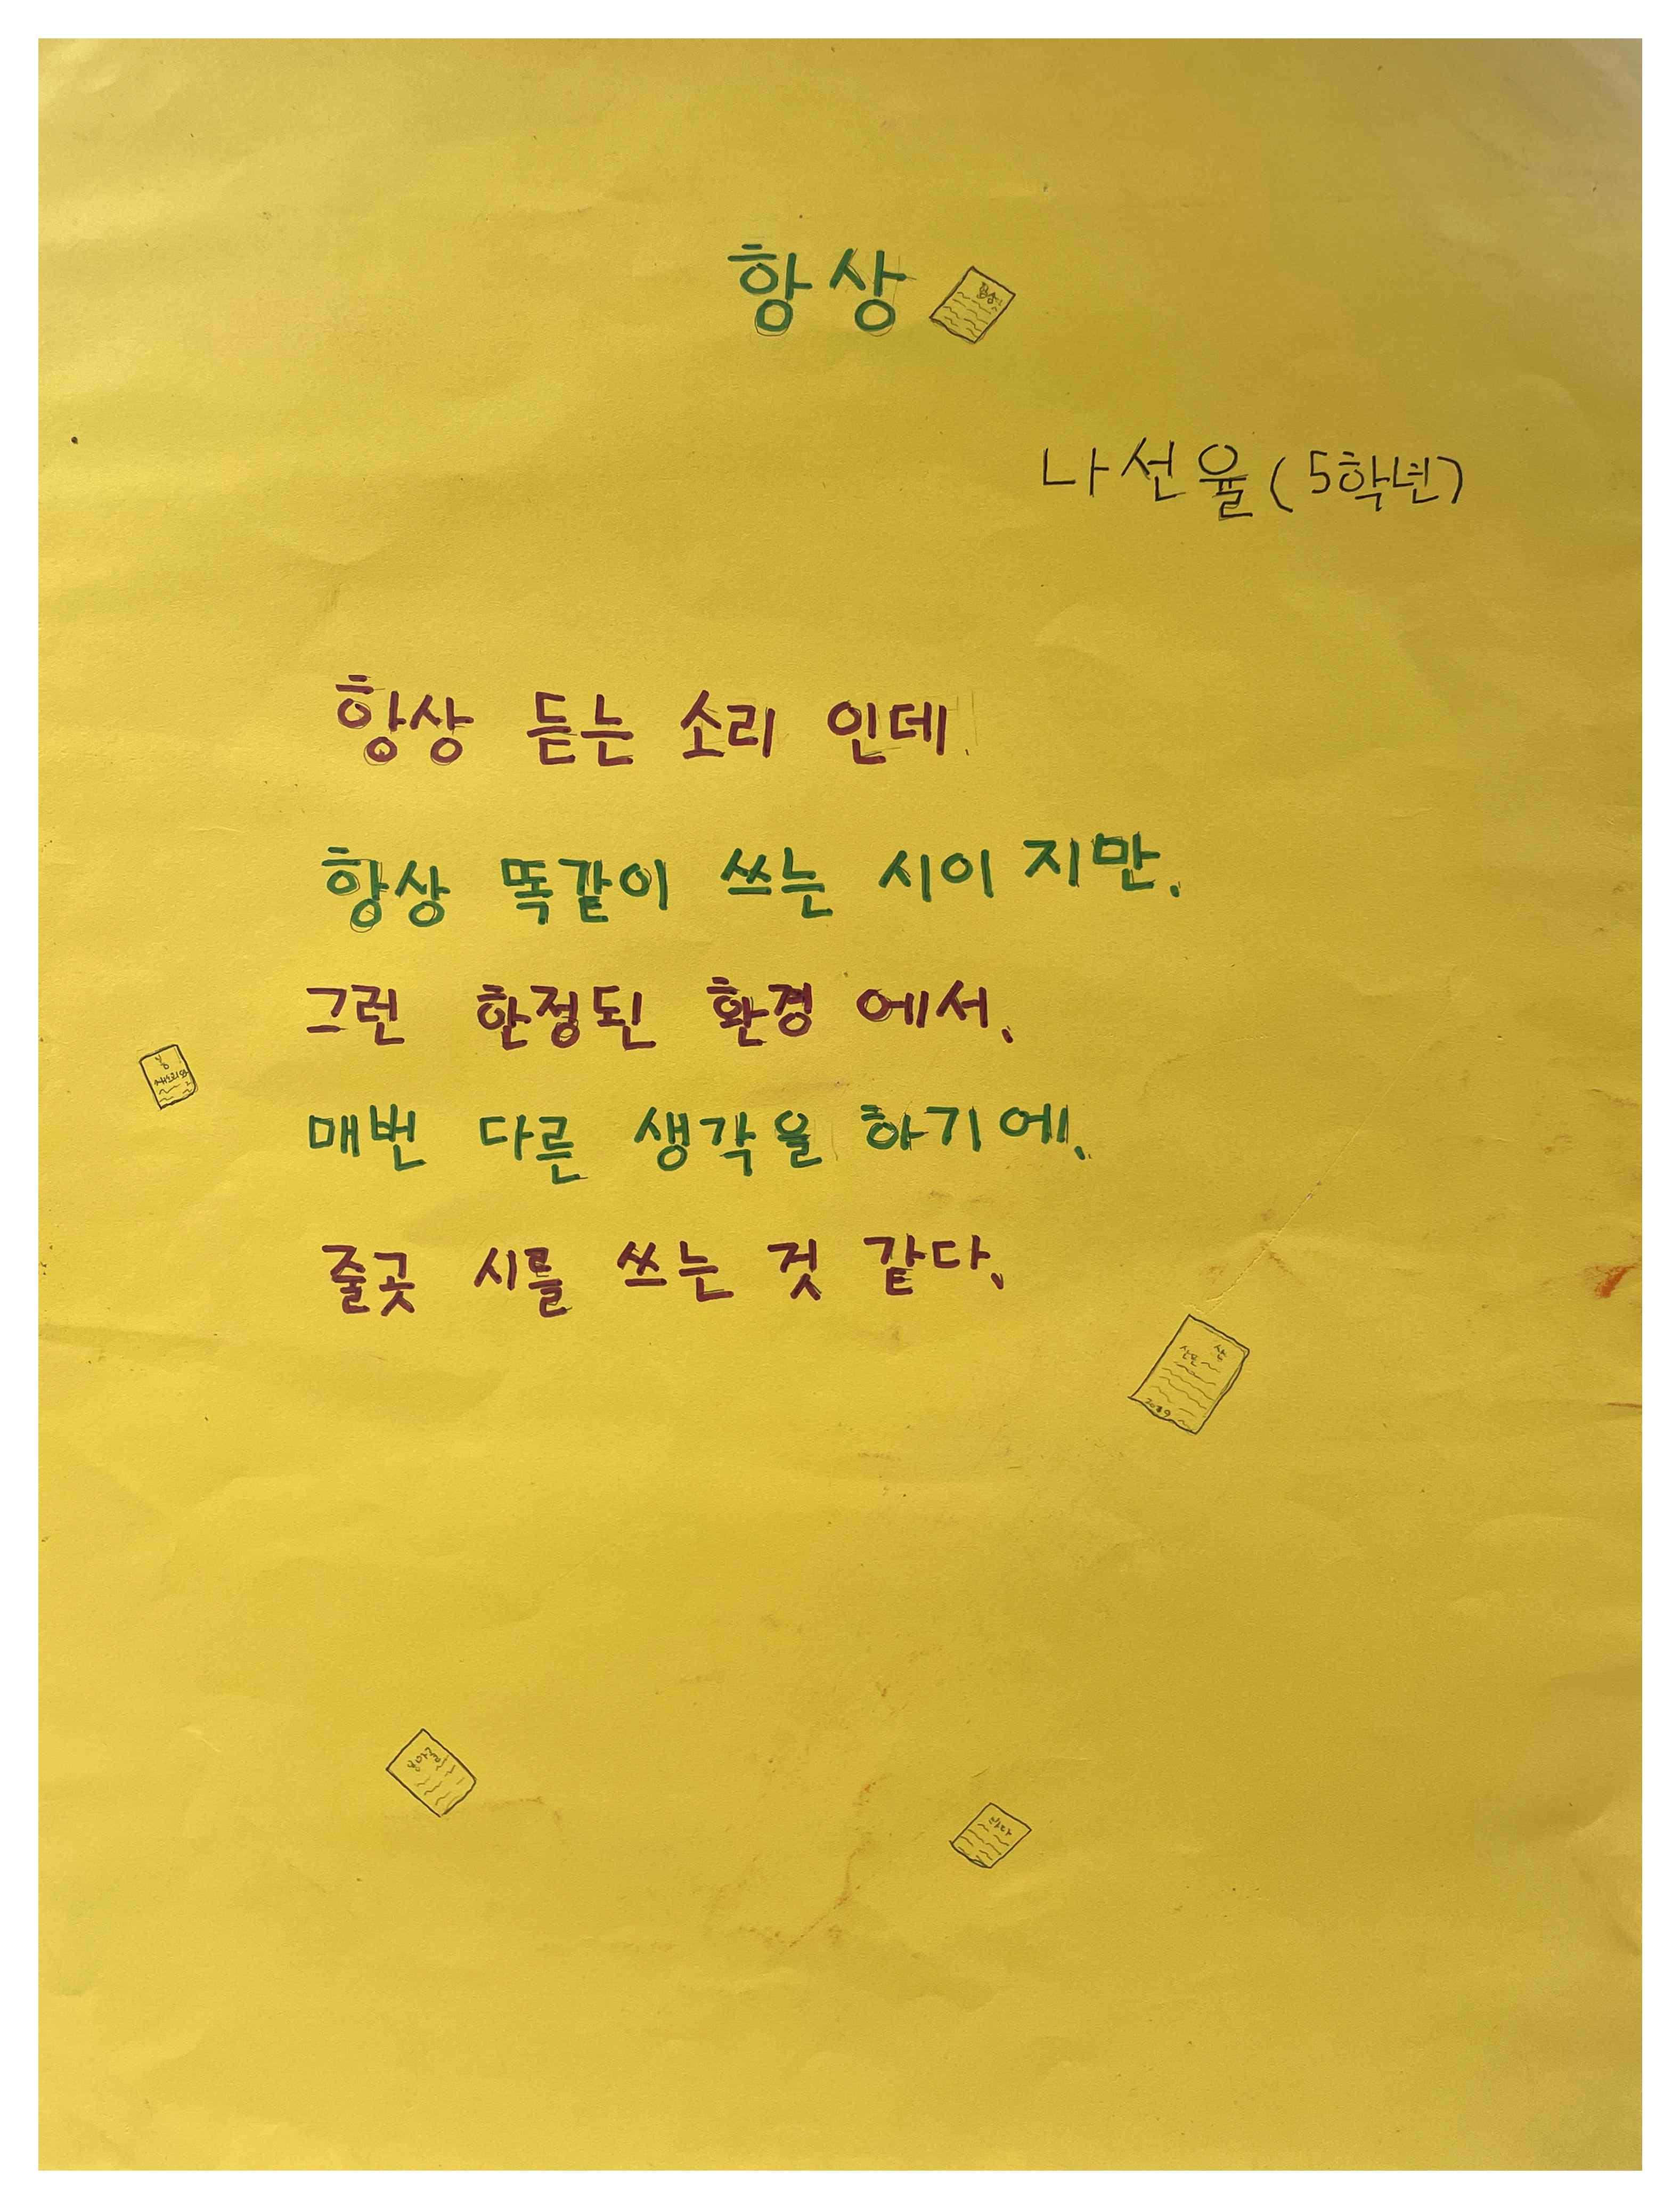 항상
나선율 (5학년)
항상 듣는 소리 인데
항상 똑같이 쓰는 시이 지만.
그런 한정된 환경 에서.
매번 다른 생각을 하기에.
줄곳 시를 쓰는 것 같다.